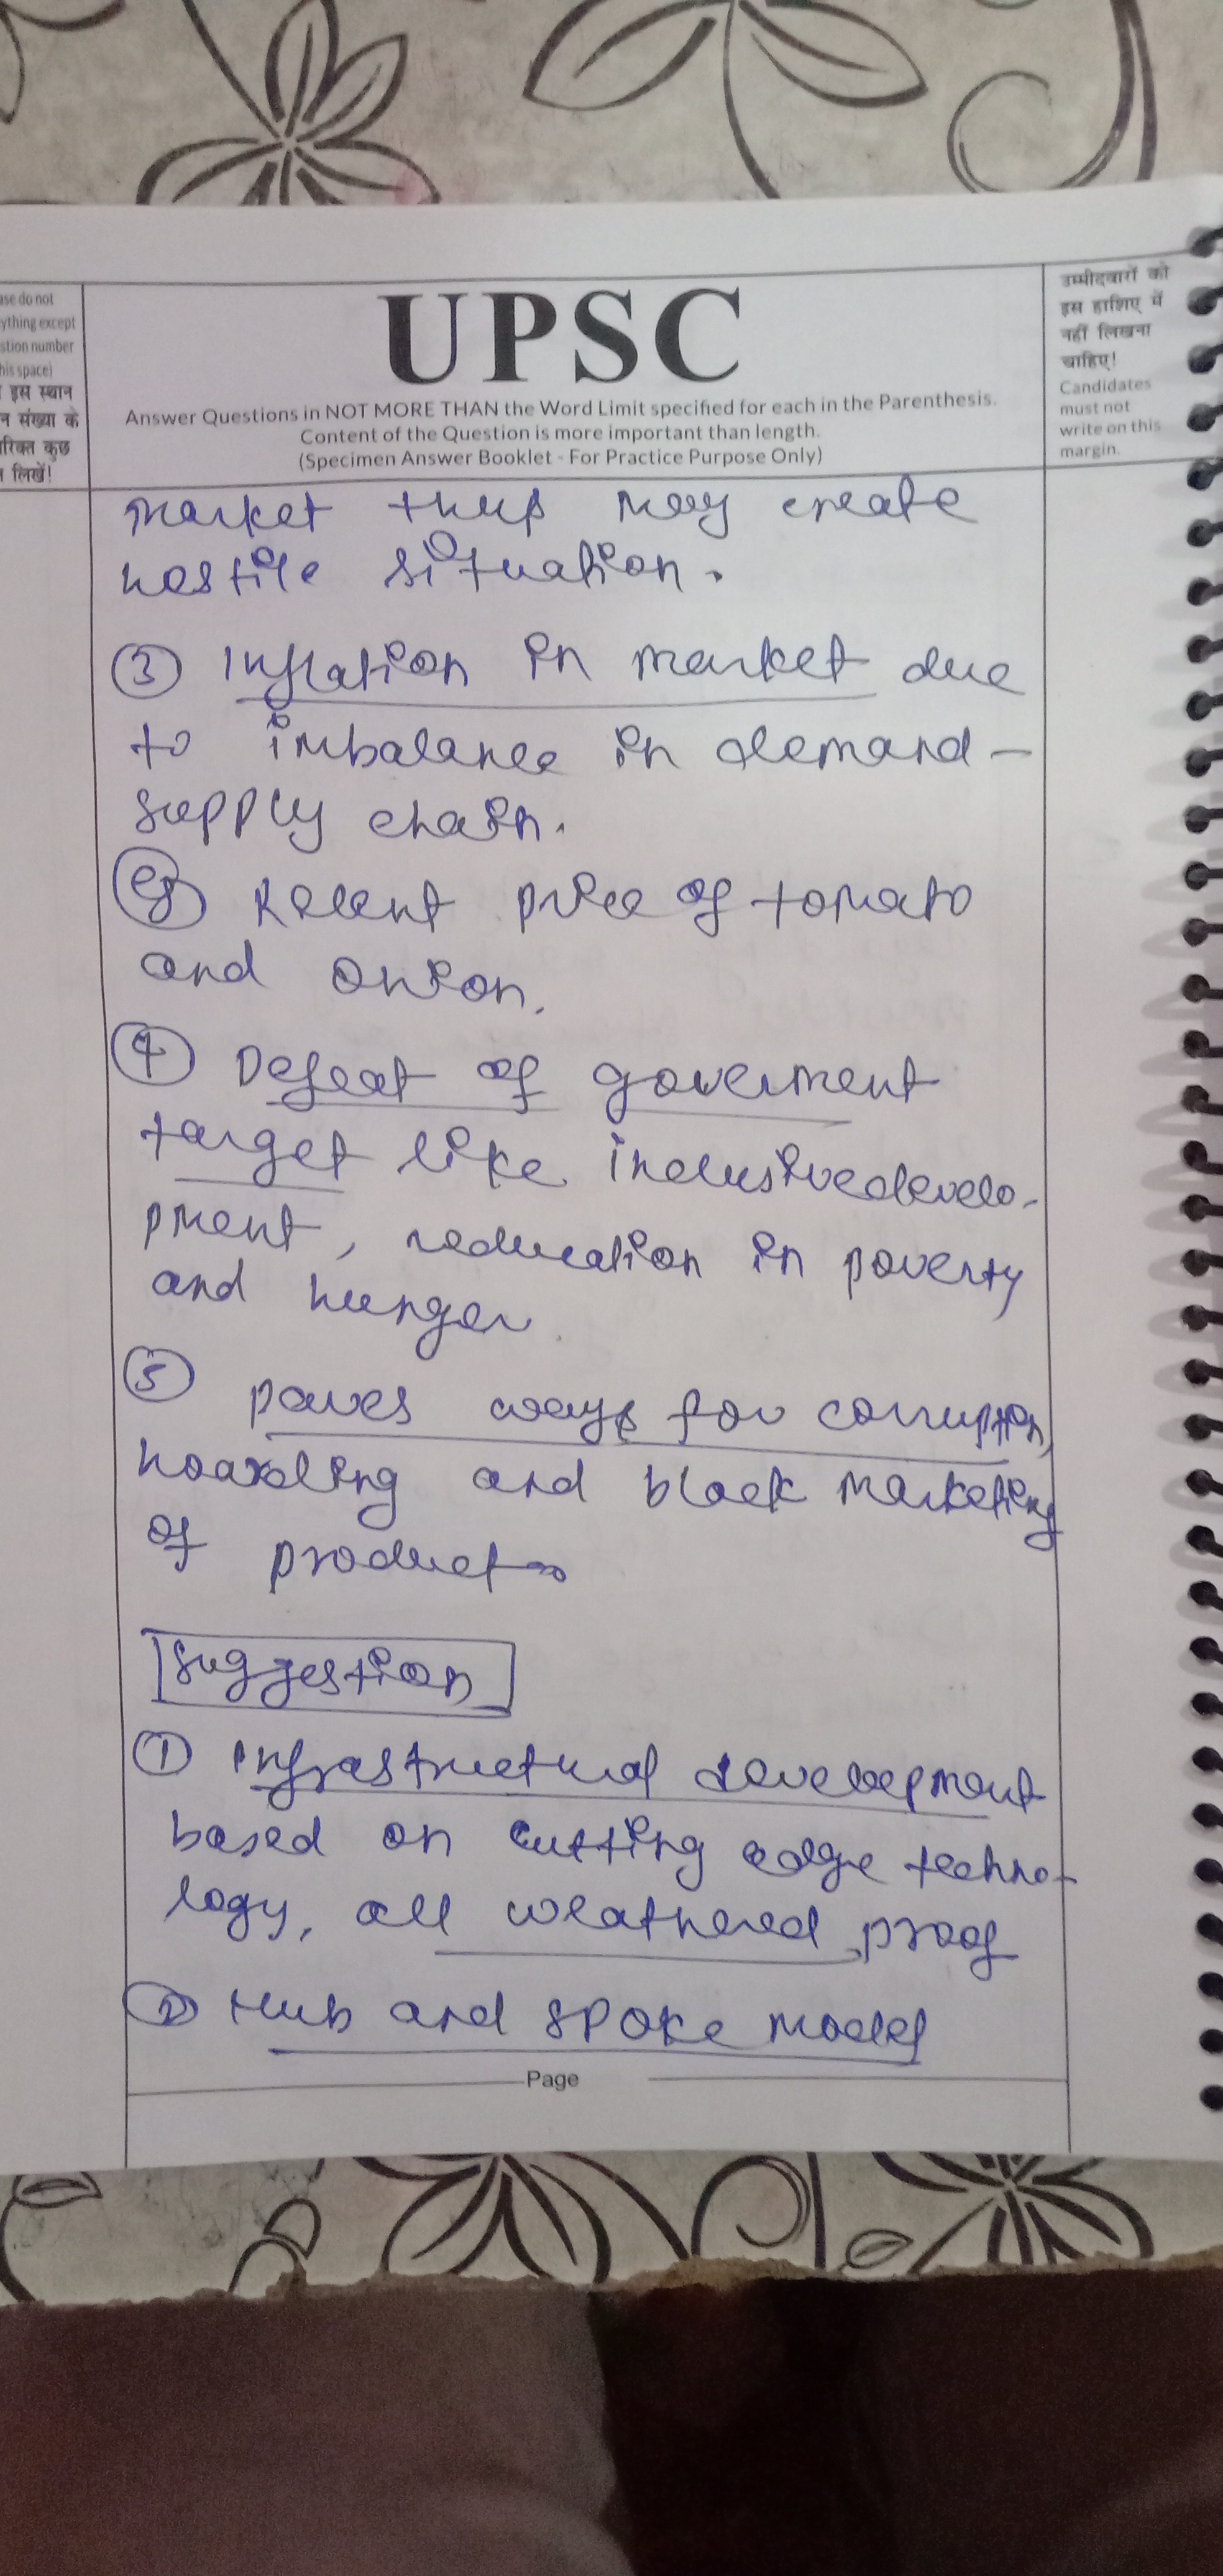 ase do not
ything except
stion number
his space)
इस स्थान
न संख्या के
रिक्त कुछ
लिखें!
UPSC
Answer Questions in NOT MORE THAN the Word Limit specified for each in the Parenthesis.
Content of the Question is more important than length.
(Specimen Answer Booklet - For Practice Purpose Only)
उम्मीदवारों को
इस हाशिए में
नहीं लिखना
चाहिए!
Candidates
must not
write on this
margin.
market thus may create
hostile situation.
③ Inflation in market due
to imbalance in demand-
supply chain.
eg Recent price of tomato
and onion.
④ Defeat of goverment
target like inclusive develo-
pment, reducation in poverty
and hunger.
⑤ paves ways for corruption,
hoarding and black marketing
of product
Suggestion
① Infrastructural development
based on cutting edge techno-
logy, all weathered proof
② Hub and spoke model
Page